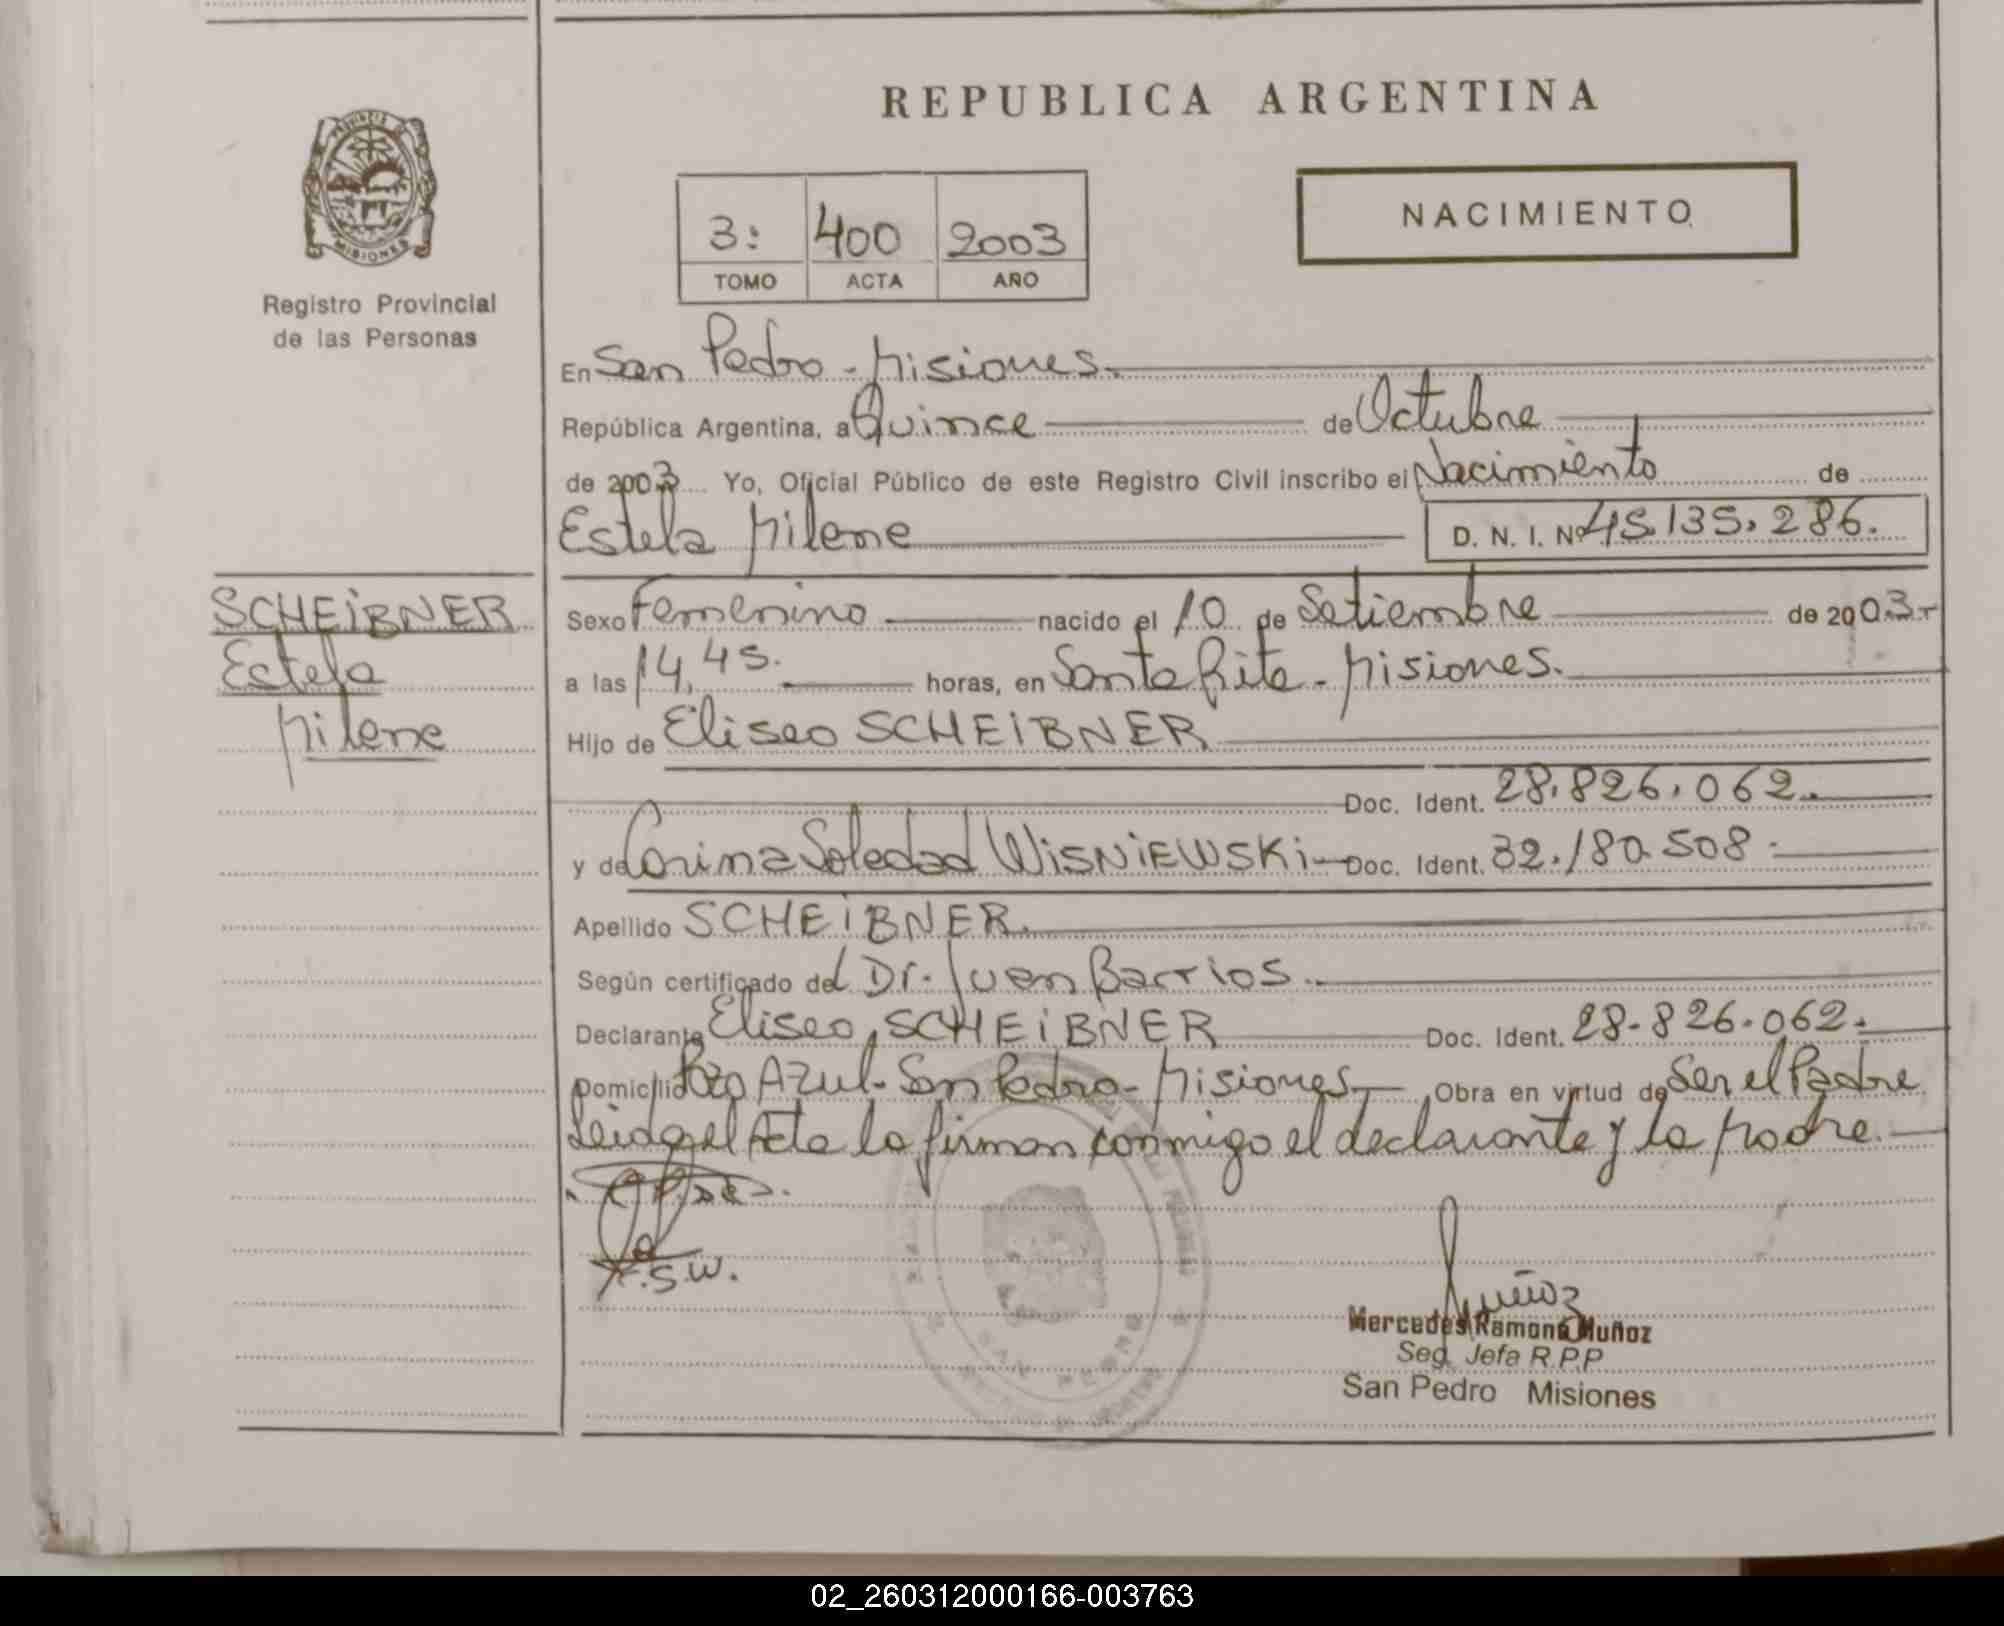 REPUBLICA ARGENTINA
PROVINCIA DE
MISIONES
Registro Provincial
de las Personas
NACIMIENTO
3: 400 2003
TOMO ACTA AÑO
En San Pedro - Misiones.
República Argentina, a Quince de Octubre
de 2003 Yo, Oficial Público de este Registro Civil inscribo el Nacimiento de
Estela Milene D. N. I. Nº 45.135.286.
SCHEiBNER
Estela
Milene
Sexo Femenino nacido el 10 de Setiembre de 2003.-
a las 14,45. horas, en Santa Rita - Misiones.
Hijo de Eliseo SCHEiBNER
Doc. Ident. 28.826.062.
y de Corina Soledad WiSNiEWSKi Doc. Ident. 32.180.508.
Apellido SCHEiBNER.
Según certificado del Dr. Juan Barrios.
Declarante Eliseo SCHEiBNER Doc. Ident. 28.826.062.
Domicilio Pozo Azul - San Pedro - Misiones Obra en virtud de Ser el Padre
Leida el Acta la firman conmigo el declarante y la madre.
.S.W.
Muñoz
Mercedes Ramona Muñoz
Seg. Jefa R.P.P
San Pedro Misiones
SAN PEDRO
02_260312000166-003763